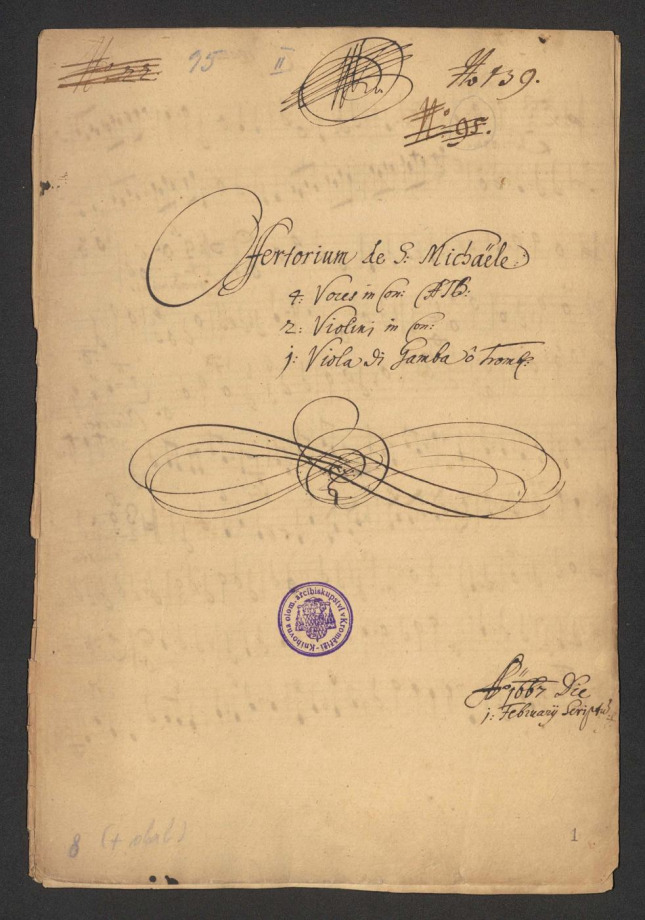 95 II
No 139.
No: 95.
Offertorium de S: Michaële:
4: Voces in Con: CATB:
2: Violini in Con:
1: Viola di Gamba ô Tromb:
Knihovna olom. arcibiskupství v Kroměříži
Ao 1667 Die
1: February Script
8
1